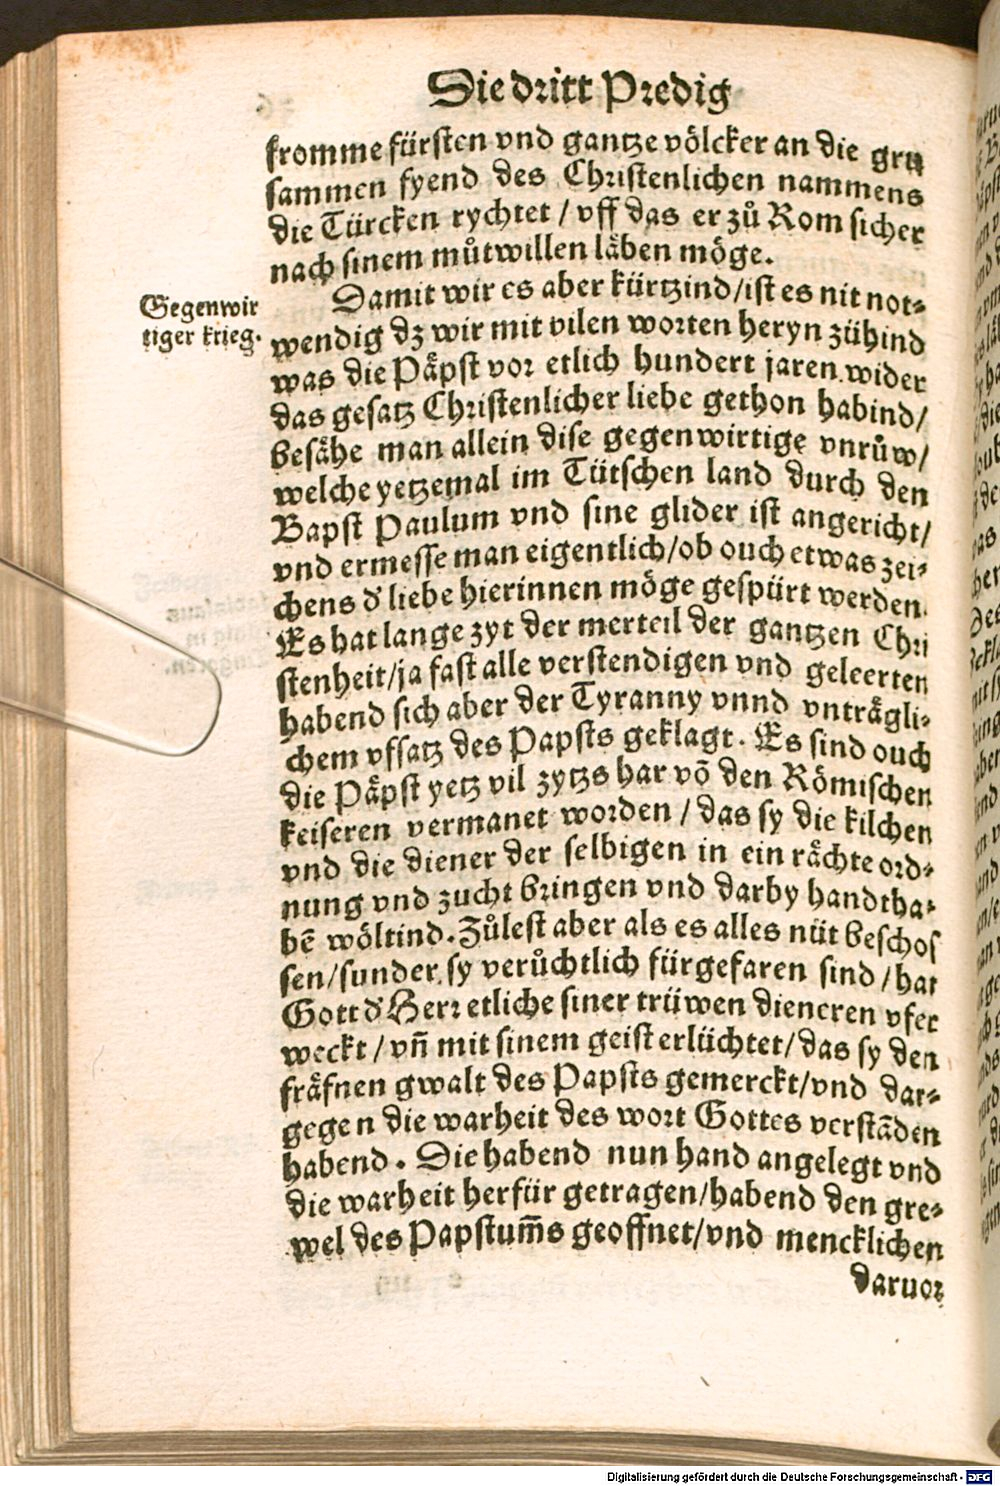 Die dritt Predig
fromme fürsten vnd gantze völcker an die gru
sammen fyend des Christenlichen nammens
die Türcken rychtet / vff das er zů Rom sicher
nach sinem můtwillen läben möge.
Gegenwir
tiger krieg.
Damit wir es aber kürtzind/ist es nit not⸗
wendig dz wir mit vilen worten heryn zühind
was die Pӓpst vor etlich hundert jaren wider
das gesatz Christenlicher liebe gethon habind/
besähe man allein dise gegenwirtige vnrůw/
welche yetzemal im Tütschen land durch den
Bapst Paulum vnd sine glider ist angericht/
vnd ermesse man eigentlich/ob ouch etwas zei⸗
chens d' liebe hierinnen möge gespürt werden.
Es hat lange zyt der merteil der gantzen Chri
stenheit/ja fast alle verstendigen vnd geleerten
habend sich aber der Tyranny vnnd vnträgli⸗
chem vffsatz des Papsts geklagt. Es sind ouch
die Päpst yetz vil zyts har võ den Römischen
keiseren vermanet worden / das sy die kilchen
vnd die diener der selbigen in ein rächte ord⸗
nung vnd zucht bringen vnd darby handtha⸗
bẽ wöltind. Zůlest aber als es alles nüt beschos
sen/sunder sy verůchtlich fürgefaren sind / hat
Gott d' Herr etliche siner trüwen dieneren vfer
weckt / vñ mit sinem geist erlüchtet/das sy den
fräfnen gwalt des Papsts gemerckt/vnd dar⸗
gegen die warheit des wort Gottes verstãden
habend. Die habend nun hand angelegt vnd
die warheit herfür getragen/habend den gre⸗
wel des Papstum̃s geoffnet/vnd mencklichen
daruor
Digitalisierung gefördert durch die Deutsche Forschungsgemeinschaft - DFG